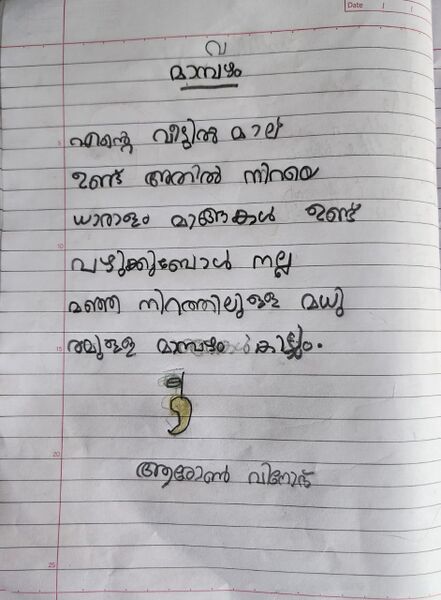 Date
വ
മാമ്പഴം
എന്റെ വീട്ടിൽ മാവ്
ഉണ്ട് അതിൽ നിറയെ
ധാരാളം മാങ്ങകൾ ഉണ്ട്
പഴുക്കുബോൾ നല്ല
മഞ്ഞ നിറത്തിലുള്ള മധു
രമുള്ള മാമ്പഴം കിട്ടും.
ആരോൺ വിനോദ്
5
10
15
20
25